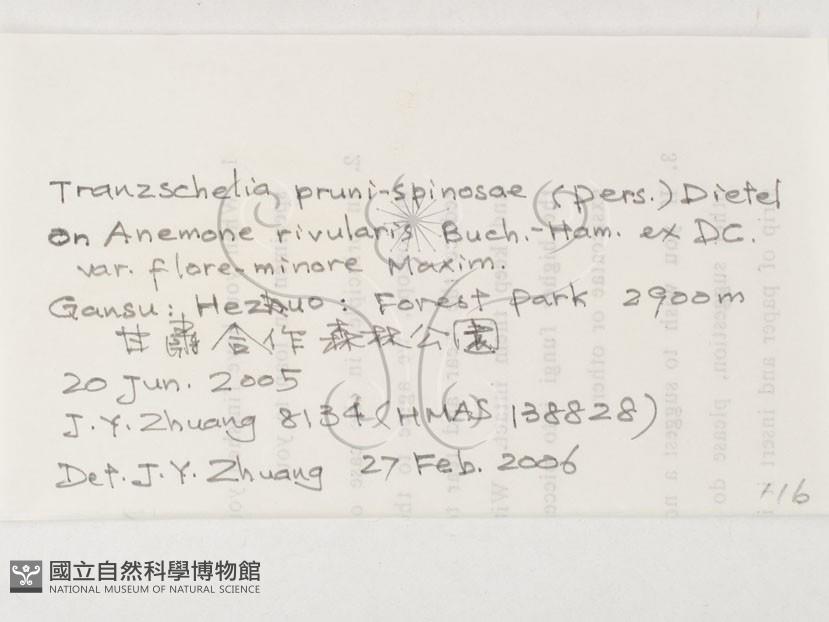 Tranzschelia pruni-spinosae (Pers.) Dietel
on Anemone rivularis Buch.-Ham. ex DC.
var. flore-minore Maxim.
Gansu: Hezuo: Forest park 2900m
甘肅合作森林公園
20 Jun. 2005
J.Y. Zhuang 8134 (HMAS 138828)
Det. J.Y. Zhuang 27 Feb. 2006
國立自然科學博物館
NATIONAL MUSEUM OF NATURAL SCIENCE